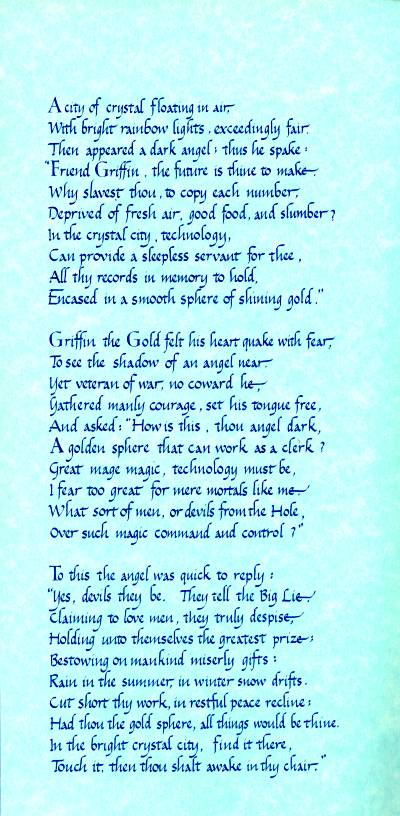 A city of crystal floating in air,
With bright rainbow lights, exceedingly fair.
Then appeared a dark angel; thus he spake:
"Friend Griffin, the future is thine to make.
Why slavest thou, to copy each number,
Deprived of fresh air, good food, and slumber?
In the crystal city, technology,
Can provide a sleepless servant for thee,
All thy records in memory to hold,
Encased in a smooth sphere of shining gold."

Griffin the Gold felt his heart quake with fear,
To see the shadow of an angel near.
Yet veteran of war, no coward he,
Gathered manly courage, set his tongue free,
And asked: "How is this, thou angel dark,
A golden sphere that can work as a clerk?
Great mage magic, technology must be,
I fear too great for mere mortals like me.
What sort of men, or devils from the Hole,
Over such magic command and control?"

To this the angel was quick to reply:
"Yes, devils they be. They tell the Big Lie,
Claiming to love men, they truly despise,
Holding unto themselves the greatest prize;
Bestowing on mankind miserly gifts:
Rain in the summer, in winter snow drifts.
Cut short thy work, in restful peace recline;
Had thou the gold sphere, all things would be thine.
In the bright crystal city, find it there,
Touch it, then thou shalt awake in thy chair."